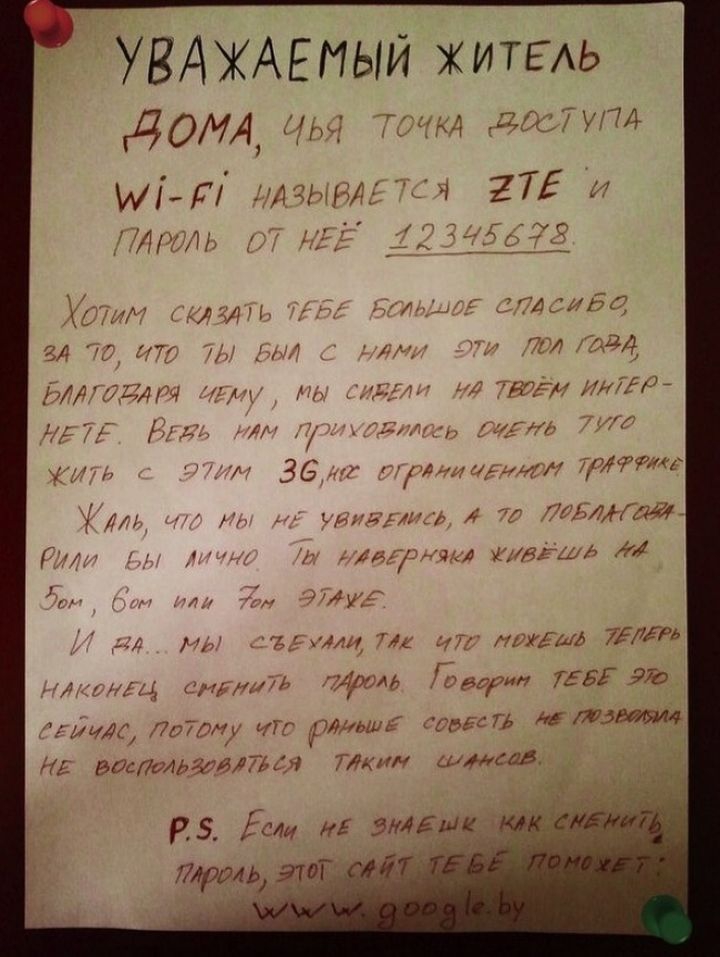 УВАЖАЕМЫЙ ЖИТЕЛЬ
ДОМА, ЧЬЯ ТОЧКА ДОСТУПА
Wi-Fi НАЗЫВАЕТСЯ ZTE И
ПАРОЛЬ ОТ НЕЁ 12345678.
ХОТИМ СКАЗАТЬ ТЕБЕ БОЛЬШОЕ СПАСИБО,
ЗА ТО, ЧТО ТЫ БЫЛ С НАМИ ЭТИ ПОЛ ГОДА,
БЛАГОДАРЯ ЧЕМУ, МЫ СИДЕЛИ НА ТВОЁМ ИНТЕР-
НЕТЕ. ВЕДЬ НАМ ПРИХОДИЛОСЬ ОЧЕНЬ ТУГО
ЖИТЬ С ЭТИМ 3G, ОГРАНИЧЕННОМ ТРАФФИКЕ.
ЖАЛЬ, ЧТО МЫ НЕ УВИДЕЛИСЬ, А ТО ПОБЛАГОДА-
РИЛИ БЫ ЛИЧНО. ТЫ НАВЕРНЯКА ЖИВЁШЬ НА
5ом, 6ом ИЛИ 7ом ЭТАЖЕ.
И ДА... МЫ СЪЕХАЛИ, ТАК ЧТО МОЖЕШЬ ТЕПЕРЬ
НАКОНЕЦ СМЕНИТЬ ПАРОЛЬ. ГОВОРИМ ТЕБЕ ЭТО
СЕЙЧАС, ПОТОМУ ЧТО РАНЬШЕ СОВЕСТЬ НЕ ПОЗВОЛЯЛА
НЕ ВОСПОЛЬЗОВАТЬСЯ ТАКИМ ШАНСОВ.
P.S. ЕСЛИ НЕ ЗНАЕШК КАК СМЕНИТЬ
ПАРОЛЬ, ЭТОТ САЙТ ТЕБЕ ПОМОЖЕТ:
www.google.by